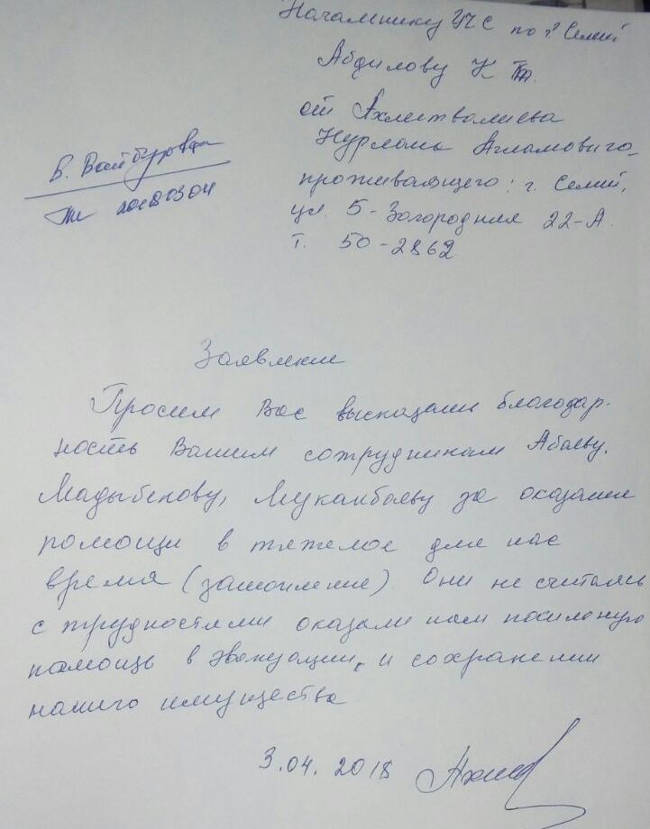 Начальнику УЧС по г. Семей
Абдилову К Т.
от Ахметвалиева
Нурлана Агламовича,
проживающего: г. Семей,
ул 5-Загородная 22-А.
т. 50-2862
Заявление
Просим Вас высказать благодар-
ность Вашим сотрудникам Абаеву,
Мадыбекову, Муканбаеву за оказание
помощи в тяжелое для нас
время (затопление). Они не считаясь
с трудностями оказали нам посильную
помощь в эвакуации, и сохранении
нашего имущества
3.04.2018